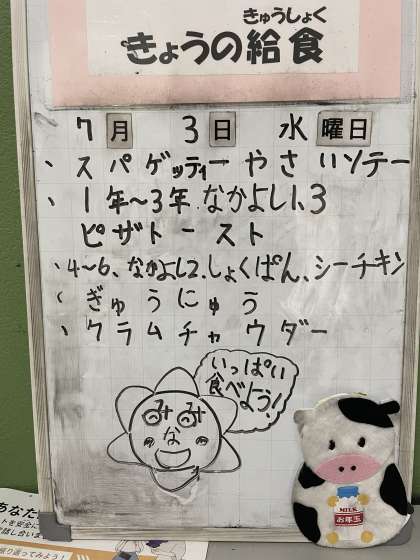 きゅうしょく
きょうの給食
7月 3日 水曜日
、スパゲッティーやさいソテー
、1年～3年.なかよし1、3
ピザトースト
、4～6、なかよし2、しょくぱん、シーチキン
、ぎゅうにゅう
、クラムチャウダー
いっぱい
食べよう!
みみ
な
MILK
お年玉
あなた